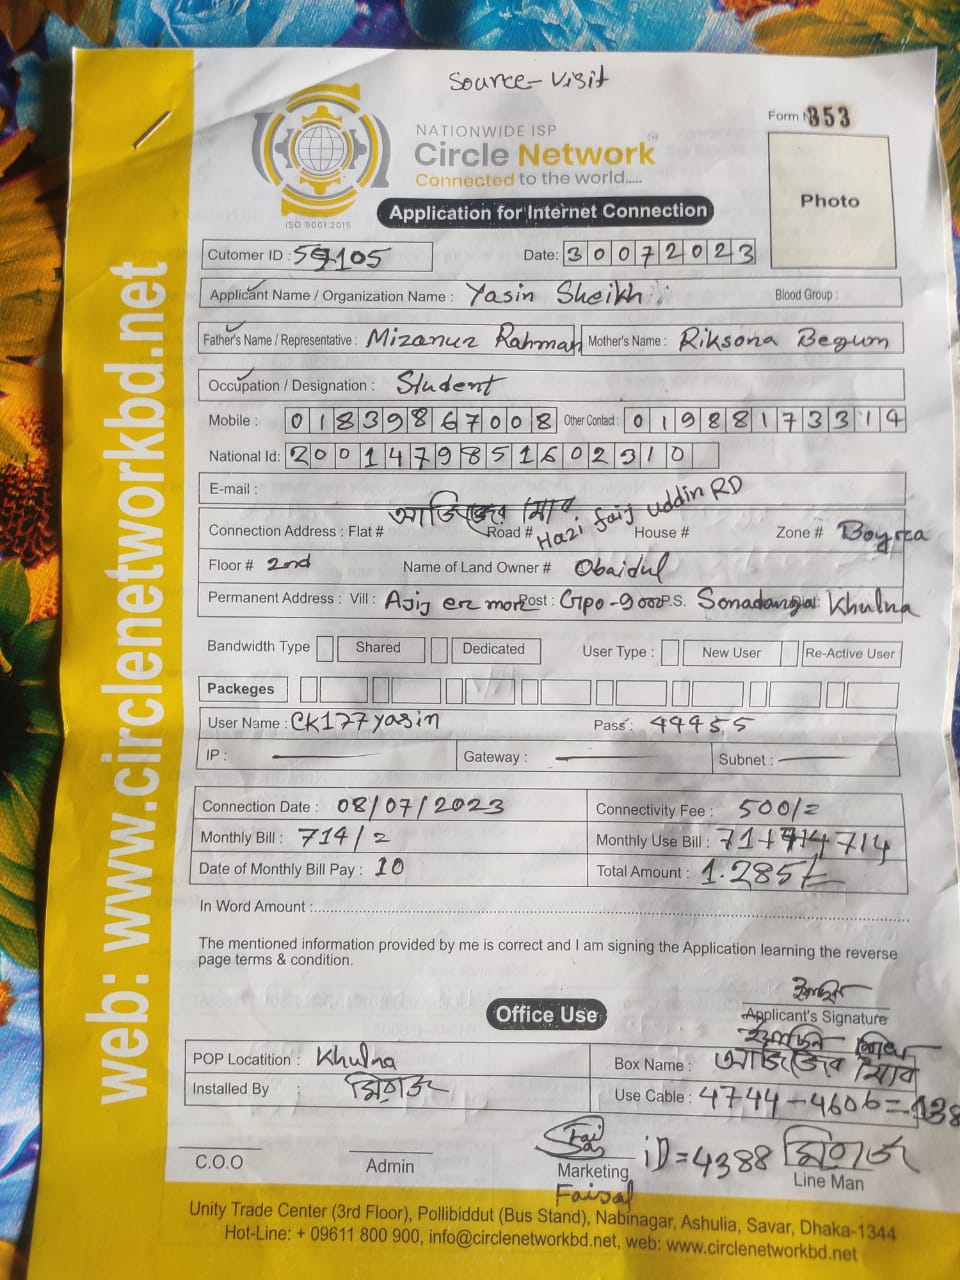 Source - Visit
Form N 353
NATIONWIDE ISP
Circle Network
Connected to the world.....
ISO 9001:2015
Photo
Application for Internet Connection
Cutomer ID : 59105 Date: 30072023
Applicant Name / Organization Name : Yasin Sheikh Blood Group :
Father's Name / Representative : Mizanur Rahman Mother's Name : Riksona Begum
Occupation / Designation : Student
Mobile : 01839867008 Other Contact : 01988173314
National Id: 2001479851602310
E-mail :
আজিজের মোড়
Connection Address : Flat # Road # Hazi faij uddin RD House # Zone # Boyra
Floor # 2nd Name of Land Owner # Obaidul
Permanent Address : Vill : Ajij er more Post : Gpo-9000 P.S. Sonadanga Dist: Khulna
Bandwidth Type Shared Dedicated User Type : New User Re-Active User
Packeges
User Name : CK177yasin Pass : 44455
IP : Gateway : Subnet :
Connection Date : 08/07/2023 Connectivity Fee : 500/=
Monthly Bill : 714/= Monthly Use Bill : 714
Date of Monthly Bill Pay : 10 Total Amount : 1.285/=
In Word Amount :
The mentioned information provided by me is correct and I am signing the Application learning the reverse
page terms & condition.
Applicant's Signature
Office Use
POP Locatition : Khulna Box Name : আজিজের মোড়
Installed By : মিরাজ Use Cable : 4744-4606=138
C.O.O Admin Marketing iD=4388 মিরাজ Line Man
Faisal
Unity Trade Center (3rd Floor), Pollibiddut (Bus Stand), Nabinagar, Ashulia, Savar, Dhaka-1344
Hot-Line: + 09611 800 900, info@circlenetworkbd.net, web: www.circlenetworkbd.net
web: www.circlenetworkbd.net